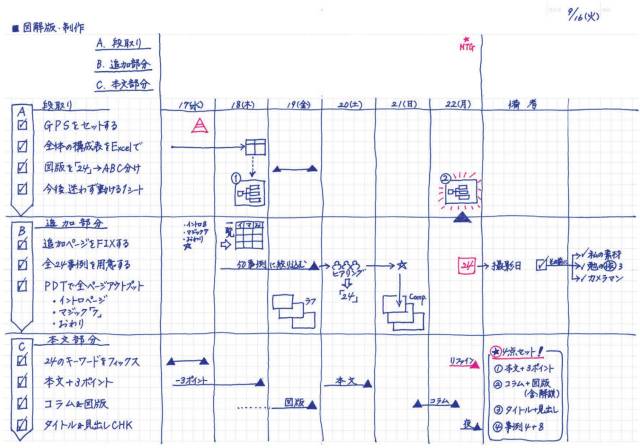 9/16(火)
■ 図解版・制作
A. 段取り
B. 追加部分
C. 本文部分
★
MTG
段取り
17(水)
18(木)
19(金)
20(土)
21(日)
22(月)
備考
A
GPSをセットする
全体の構成表をExcelで
図版を「24」→ABC分け
今後、迷わず動ける1シート
①
②
追加部分
B
追加ページをFIXする
全24事例を用意する
PDTで全ページアウトプット
・イントロページ
・マジック「7」
・おわり
・イントロ8
・マジック7
・おわり
☆
一覧
イ マ お
切事例に絞り込む
ヒアリング
「24」
☆
24
→撮影日
✓私の素材
3
✓カメラマン
ラフ
Comp.
本文部分
C
24のキーワードをフィックス
本文+3ポイント
コラム&図版
タイトル&見出しCHK
-3ポイント
本文
図版
コラム
リファイン
夜
★4点セット!
① 本文+3ポイント
② コラム+図版
(含:解説)
③ タイトル+見出し
④ 事例4+8